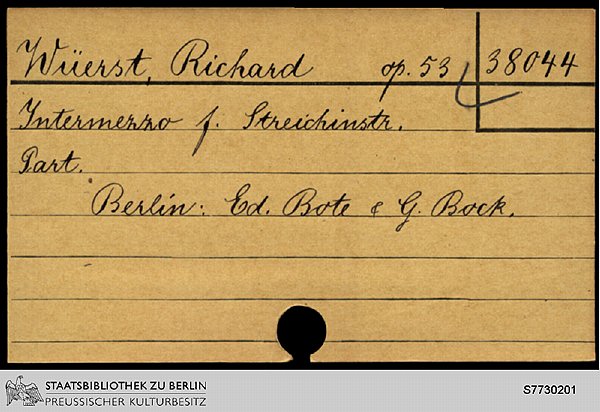 Wüerst, Richard op. 53 38044
Intermezzo f. Streichinstr.
Part.
Berlin: Ed. Bote & G. Bock.
STAATSBIBLIOTHEK ZU BERLIN
PREUSSISCHER KULTURBESITZ
S7730201